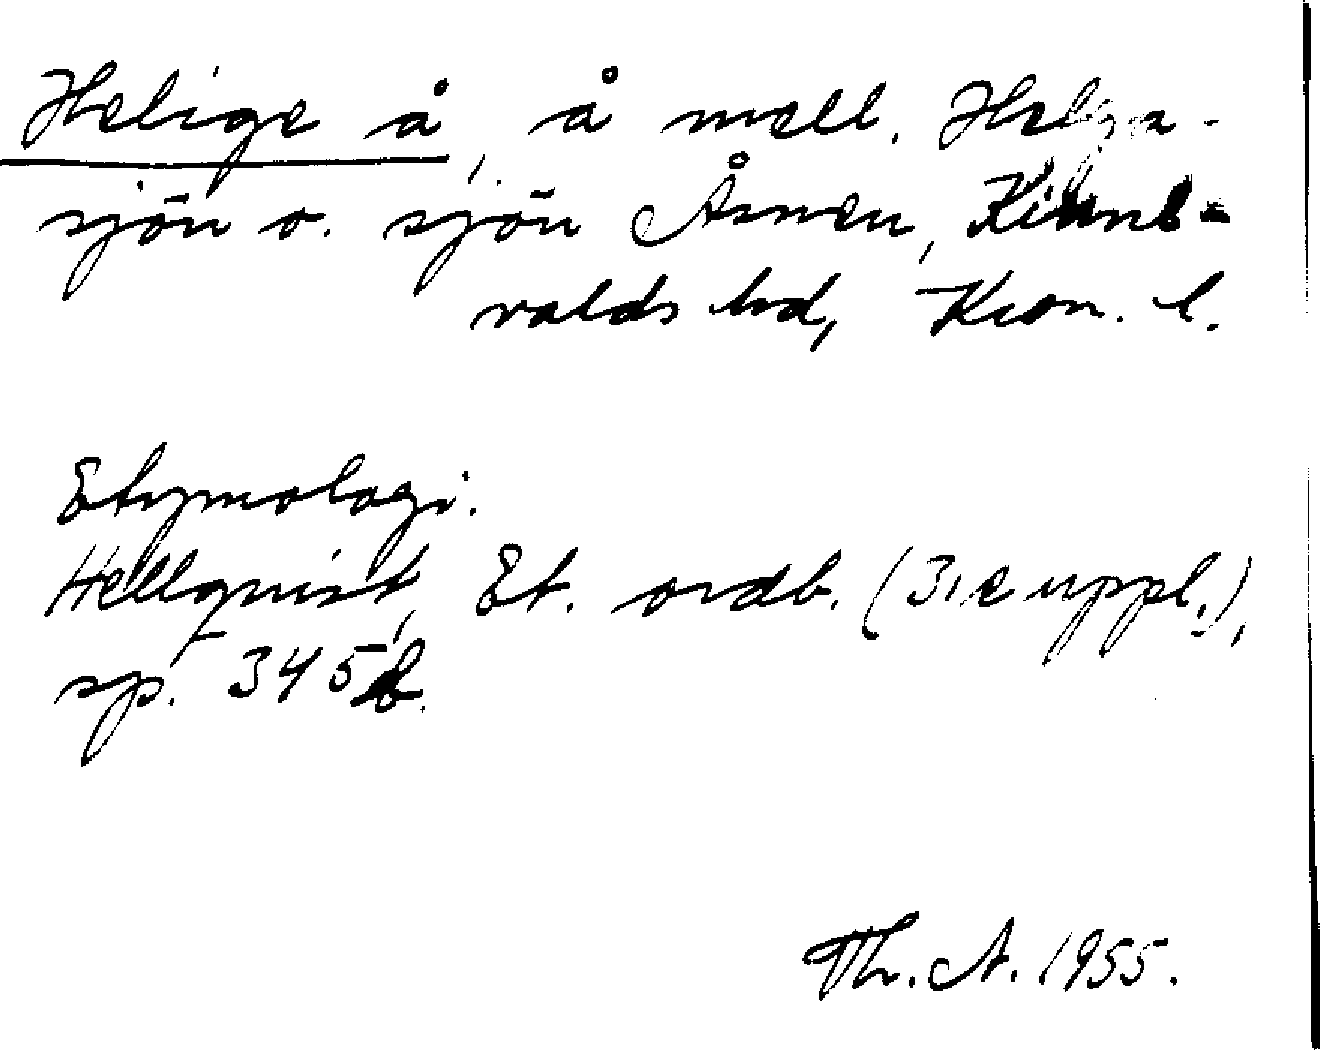 Helige å, å mell. Helga-
sjön o. sjön Åsnen, Kinne-
valds hd, Kron. l.
Etymologi.
Hellquist, Et. ordb. (3:e uppl.),
sp. 345 b.
Th. A. 1955.